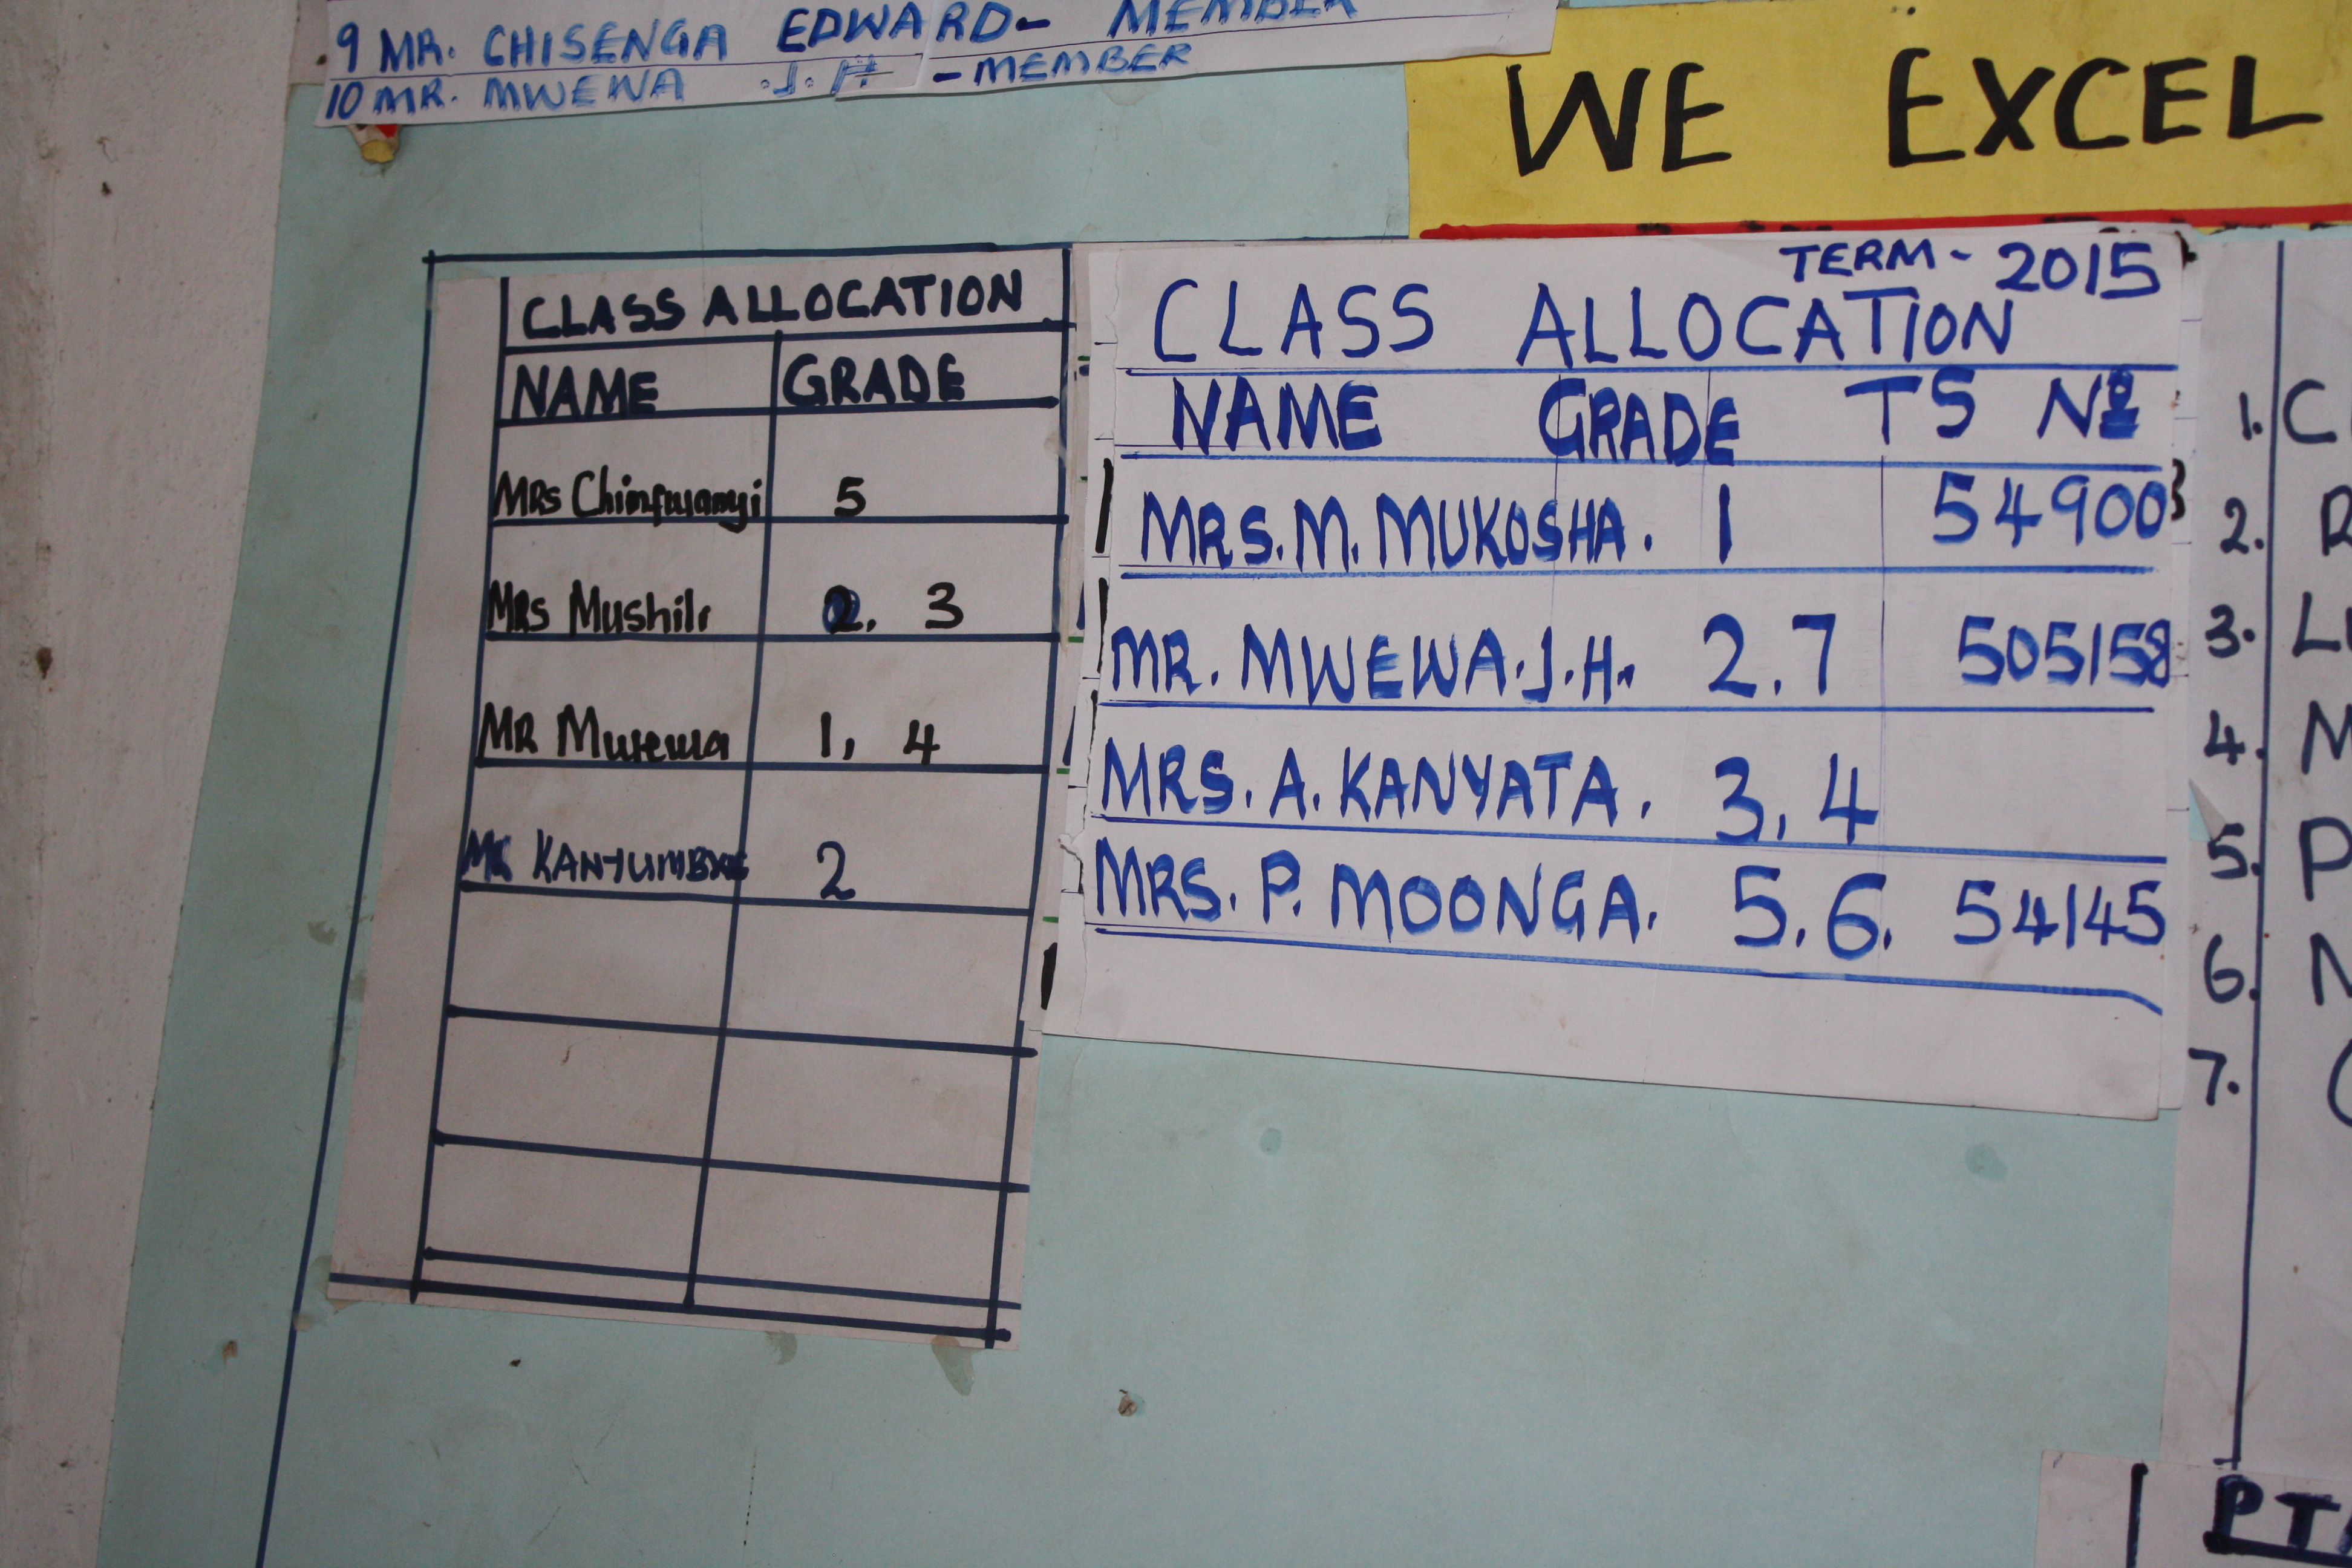 9 MR. CHISENGA EDWARD- MEMBER
10 MR. MWEWA .J.H - MEMBER
WE EXCEL
CLASS ALLOCATION
NAME GRADE
MRS Chimfwanyi 5
MRS Mushili 2, 3
MR Mwewa 1, 4
2
TERM - 2015
CLASS ALLOCATION
NAME GRADE TS Nº
MRS. M. MUKOSHA. 1 549003
MR. MWEWA.J.H. 2.7 505158
MRS. A. KANYATA. 3, 4
MRS. P. MOONGA. 5.6. 54145
1. C
2. R
3. L
4. M
5. P
6. N
7.
PT